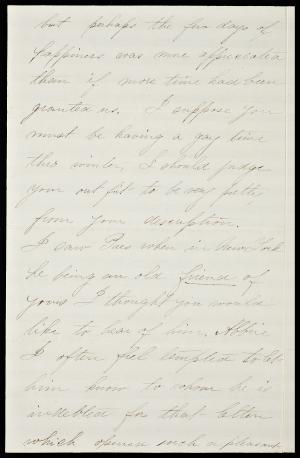 but perhaps the few days of
happiness was more appreciated
than if more time had been
granted us. I suppose you
must be having a gay time
this winter, I should judge
your out fit to be very pretty
from your description.
I saw when in New York
he being an old friend of
yours I thought you would
like to hear of him. Abbie
I often feel tempted to let
him know to whom he is
indebted for that letter
which opened such a pleasant